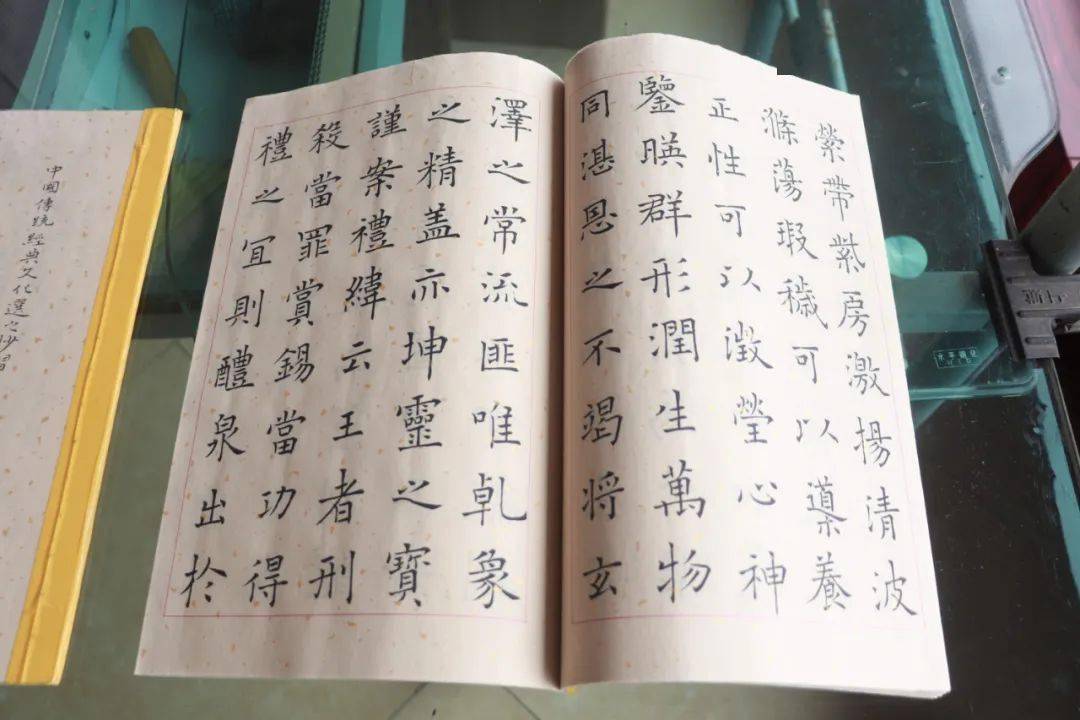 縈帶紫房激揚清波
滌蕩瑕穢可以導養
正性可以澂瑩心神
鑒暎群形潤生萬物
同湛恩之不竭将玄
澤之常流匪唯乹象
之精盖亦坤靈之寶
謹案禮緯云王者刑
殺當罪賞錫當功得
禮之冝則醴泉出於
中國傳統經典文化選之抄習